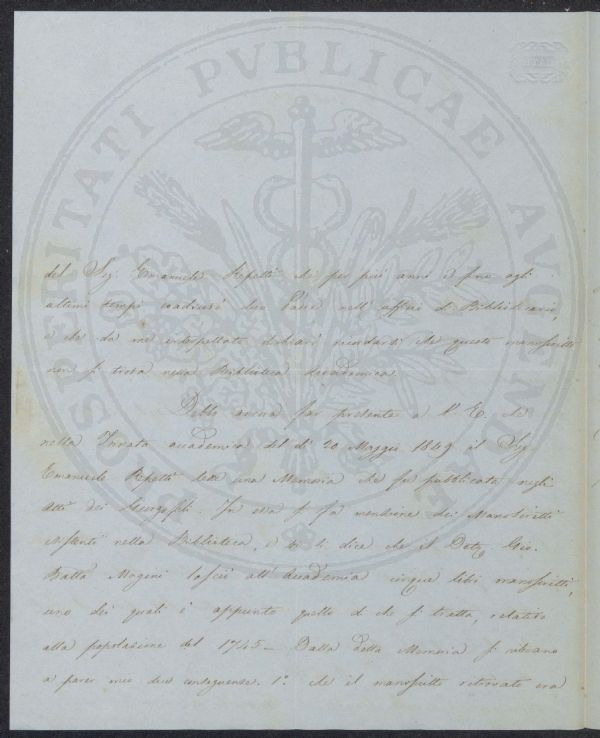 PROSPERITATI PVBLICAE AVGENDAE
del Sig. Emanuele Repetti che per più anni e fino agli
ultimi tempi coadiuvò suo nell' affari di Bibliotecario,
e che da me interpellato dichiarò ricordarsi che questo manoscritto
non si trova nella Biblioteca Accademica.
Debbo ancora far presente a V. E. che
nella Tornata accademica del dì 20 Maggio 1849 il Sig.
Emanuele Repetti lesse una Memoria che fu pubblicata negli
Atti dei Georgofili. In essa si fa menzione dei Manoscritti
esistenti nella Biblioteca, e si dice che il Dott. Gio.
Batta Magini lasciò all' Accademia cinque libri manoscritti,
uno dei quali è appunto quello di che si tratta, relativo
alla popolazione del 1745. Dalla detta Memoria si rilevano
a parer mio due conseguenze. 1.° che il manoscritto ritrovato era